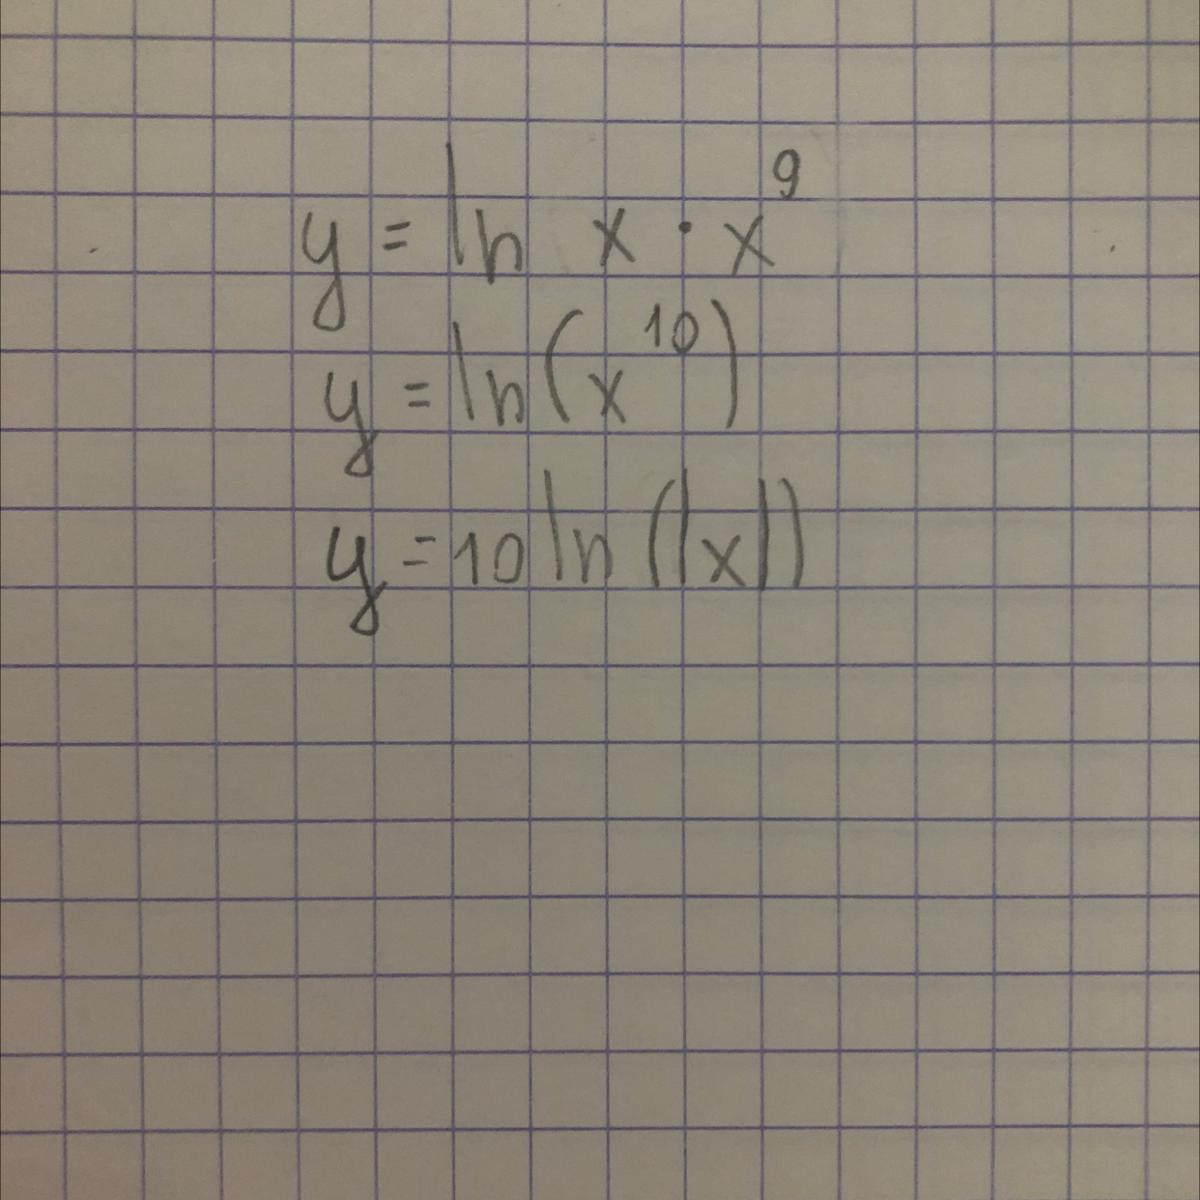 y = ln x · x⁹
y = ln(x¹⁰)
y = 10 ln(|x|)